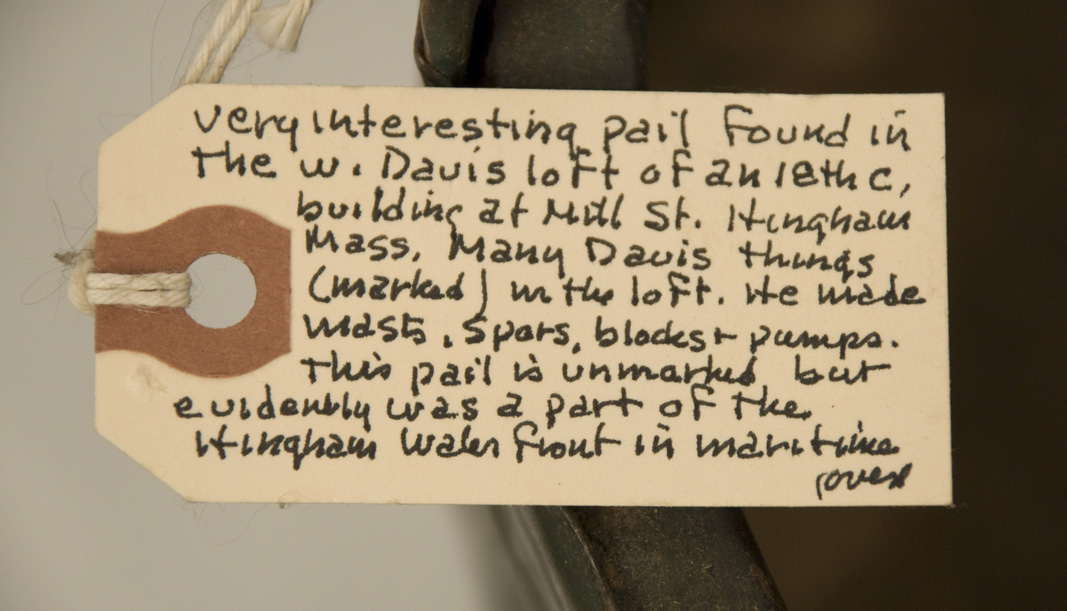 very interesting pail found in
the W. Davis loft of an 18th c,
building at Mill St. Hingham
Mass. Many Davis things
(marked) in the loft. He made
masts, spars, blocks + pumps.
This pail is unmarked but
evidently was a part of the
Hingham Water front in maritime
(over)